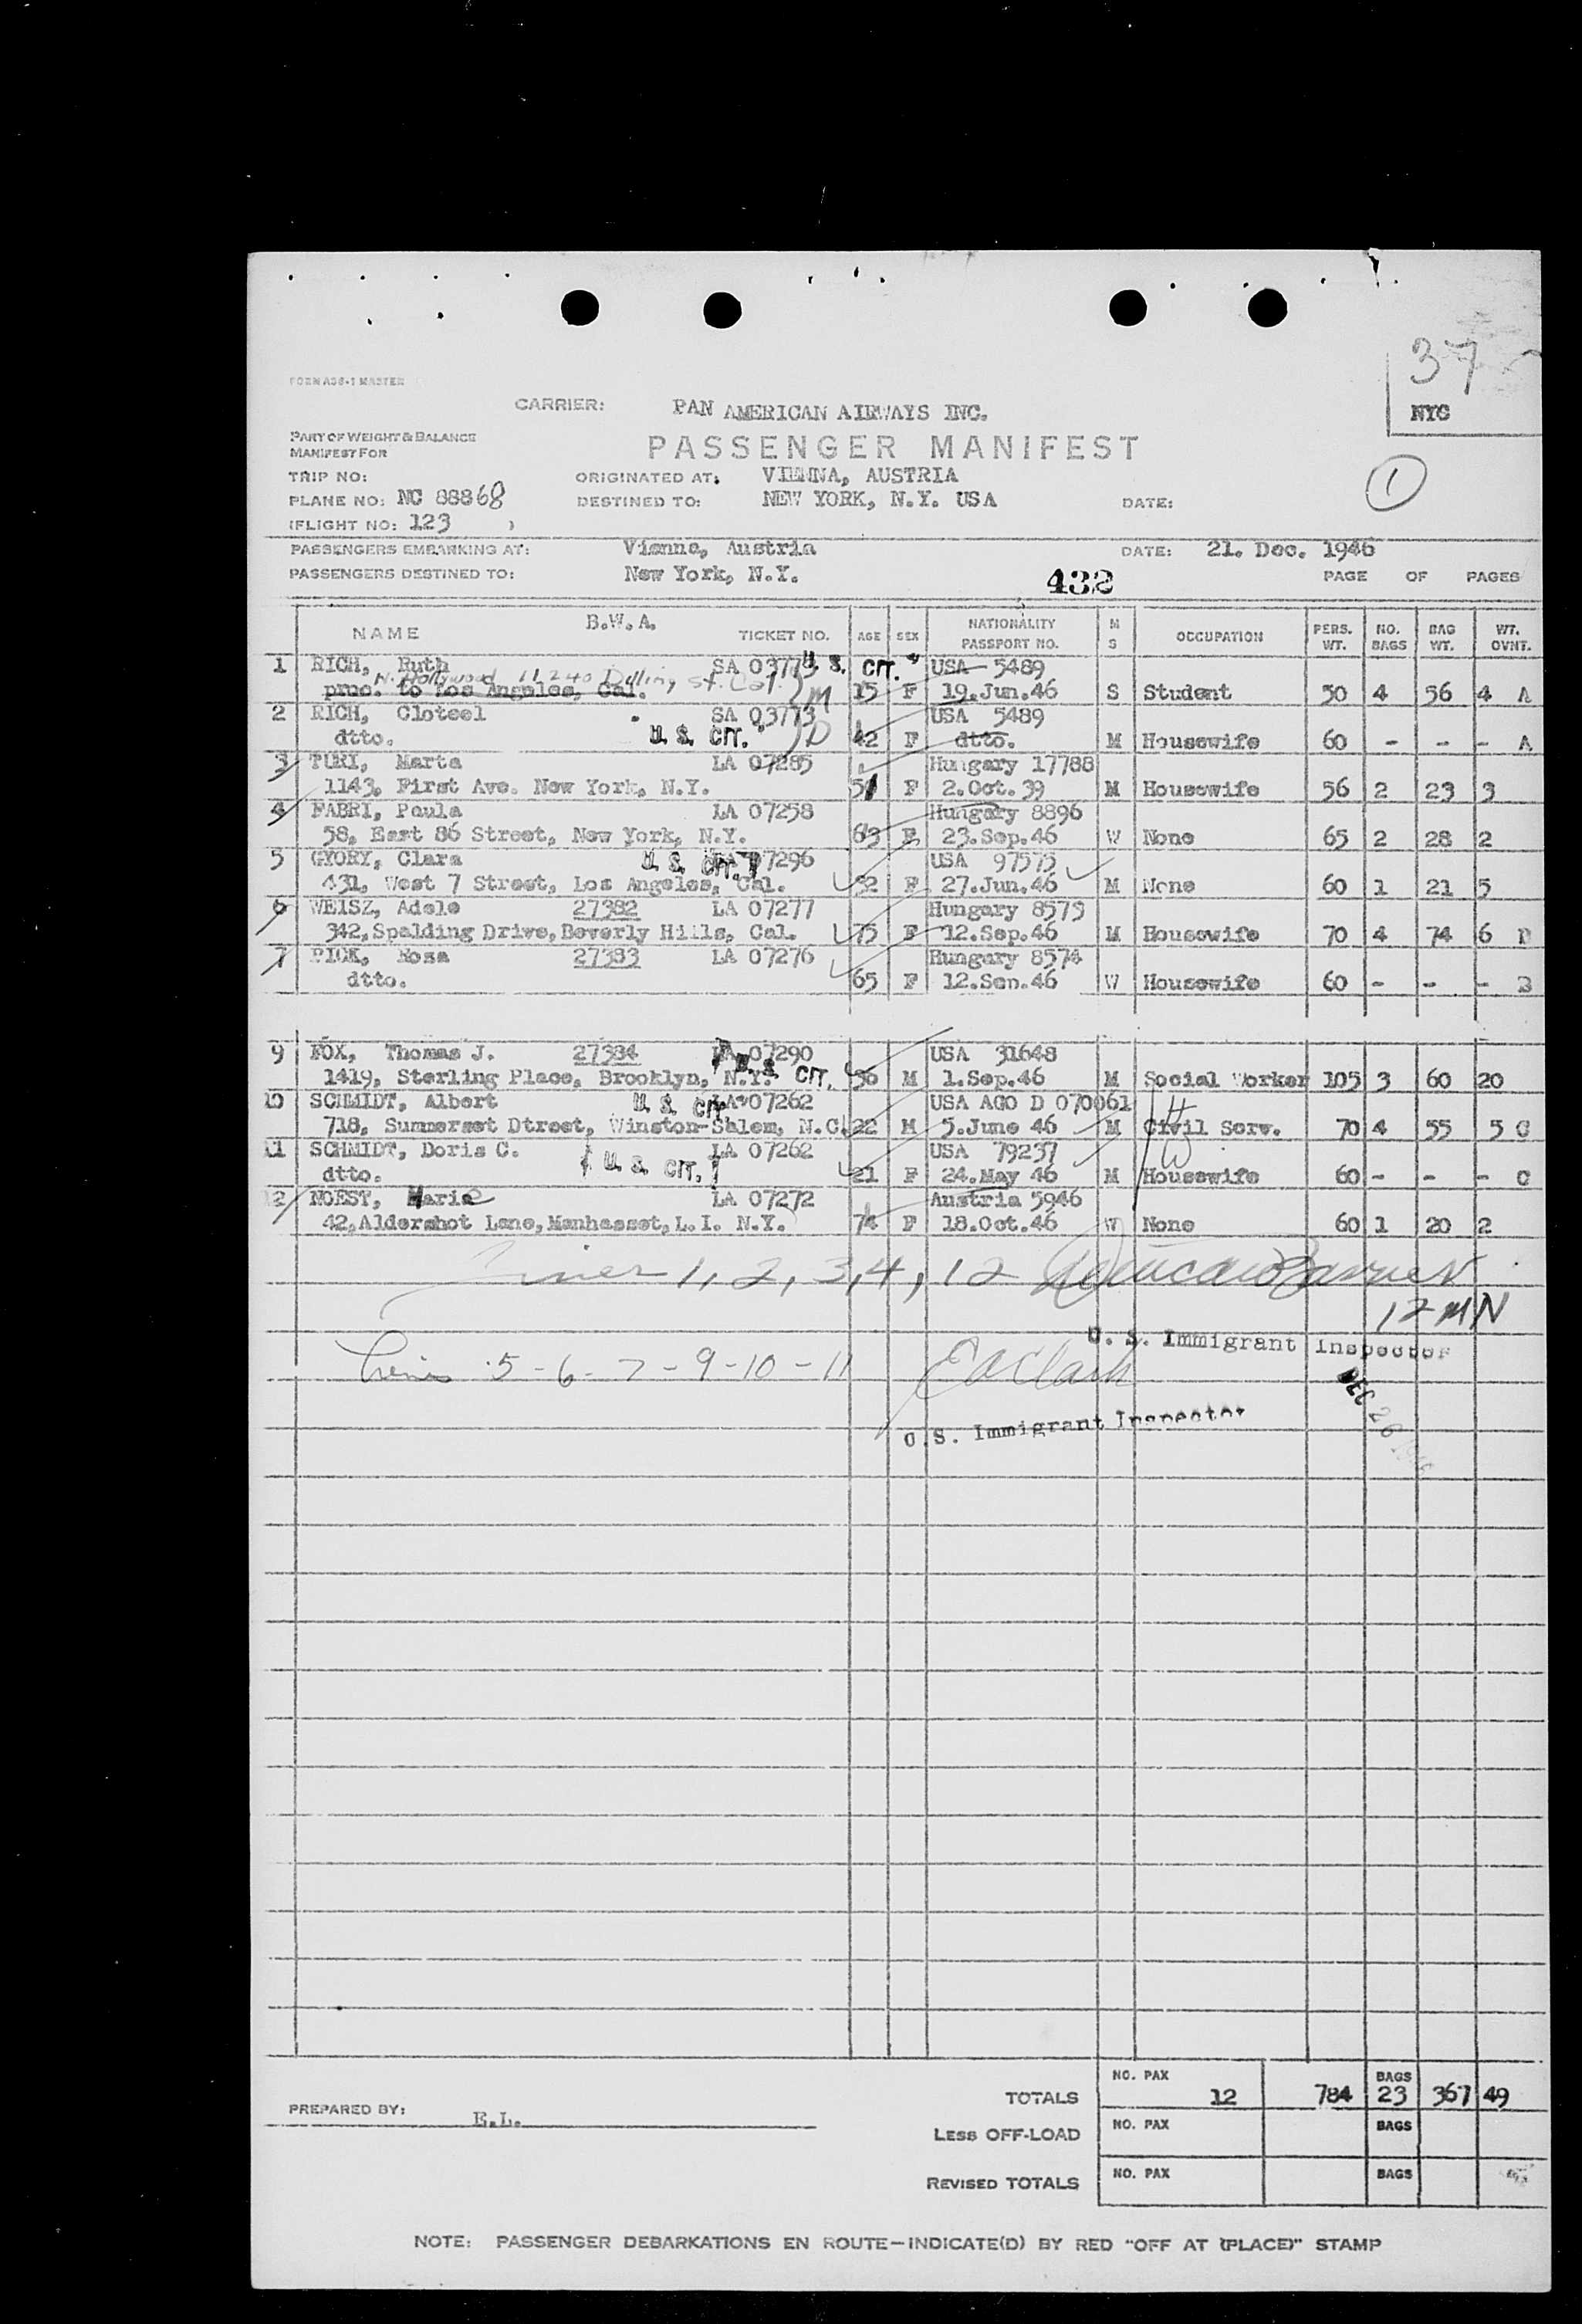 37
NYC
FORM A36-1 MASTER
CARRIER: PAN AMERICAN AIRWAYS INC.
PART OF WEIGHT & BALANCE
MANIFEST FOR
PASSENGER MANIFEST
TRIP NO: ORIGINATED AT: VIENNA, AUSTRIA
PLANE NO: NC 88868 DESTINED TO: NEW YORK, N.Y. USA DATE: 1
(FLIGHT NO: 123 )
PASSENGERS EMBARKING AT: Vienna, Austria DATE: 21. Dec. 1946
PASSENGERS DESTINED TO: New York, N.Y. 432 PAGE OF PAGES
NAME B.W.A. TICKET NO. AGE SEX NATIONALITY PASSPORT NO. M S OCCUPATION PERS. WT. NO. BAGS BAG WT. WT. OVNT.
1 RICH, Ruth SA 03773 U. S. CIT. USA 5489
N. Hollywood 11240 Dilling St. Cal.
proc. to Los Angeles, Cal. M 15 F 19.Jun.46 S Student 50 4 56 4 A
2 RICH, Cloteel SA 03773 USA 5489
dtto. U. S. CIT. D 42 F dtto. M Housewife 60 - - - A
3 TURI, Marta LA 07285 Hungary 17788
1143, First Ave. New York, N.Y. 51 F 2.Oct.39 M Housewife 56 2 23 3
4 FABRI, Paula LA 07258 Hungary 8896
58, East 86 Street, New York, N.Y. 63 F 23.Sep.46 W None 65 2 28 2
5 GYORY, Clara U. S. CIT. 07296 USA 97575
431, West 7 Street, Los Angeles, Cal. 52 F 27.Jun.46 M None 60 1 21 5
6 WEISZ, Adele 27382 LA 07277 Hungary 8575
342,Spalding Drive,Beverly Hills, Cal. 75 F 12.Sep.46 M Housewife 70 4 74 6 B
7 PICK, Rosa 27383 LA 07276 Hungary 8574
dtto. 65 F 12.Sep.46 W Housewife 60 - - - B
9 FOX, Thomas J. 27384 LA 07290 USA 31648
1419, Sterling Place, Brooklyn, N.Y. U. S. CIT. 56 M 1.Sep.46 M Social Worker 105 3 60 20
10 SCHMIDT, Albert U. S. CIT LA 07262 USA AGO D 070061
718, Summerset Dtreet, Winston-Shlem, N.C. 22 M 5.June 46 M Civil Serv. 70 4 55 5 C
H
11 SCHMIDT, Doris C. U. S. CIT. LA 07262 USA 79237
W
dtto. 21 F 24.May 46 M Housewife 60 - - - C
12 NOEST, Marie LA 07272 Austria 5946
42,Aldershot Lane,Manhasset,L.I. N.Y. 74 F 18.Oct.46 W None 60 1 20 2
Lines 1, 2, 3, 4, 12
12 MN
U. S. Immigrant Inspector
Lines 5 - 6 - 7 - 9 - 10 - 11 E A Clark
DEC 26 1946
U. S. Immigrant Inspector
TOTALS NO. PAX 12 784 BAGS 23 367 49
PREPARED BY: E.L.
LESS OFF-LOAD NO. PAX BAGS
REVISED TOTALS NO. PAX BAGS
NOTE: PASSENGER DEBARKATIONS EN ROUTE—INDICATE(D) BY RED "OFF AT (PLACE)" STAMP